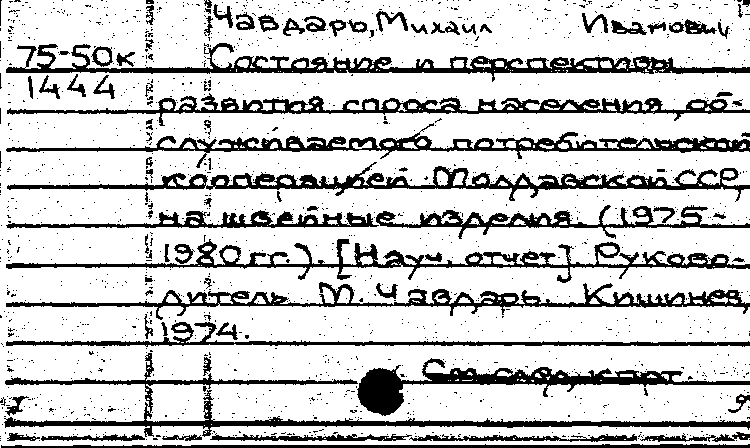 Чавдарь, Михаил Иванович
75-50к Состояние и перспективы
1444
развития спроса населения, об-
служиваемого потребительской
кооперацией Молдавской ССР,
на швейные изделия. (1975-
1980 гг.). [Науч. отчет]. Руково-
дитель М. Чавдарь. Кишинев,
1974.
См. след. карт.